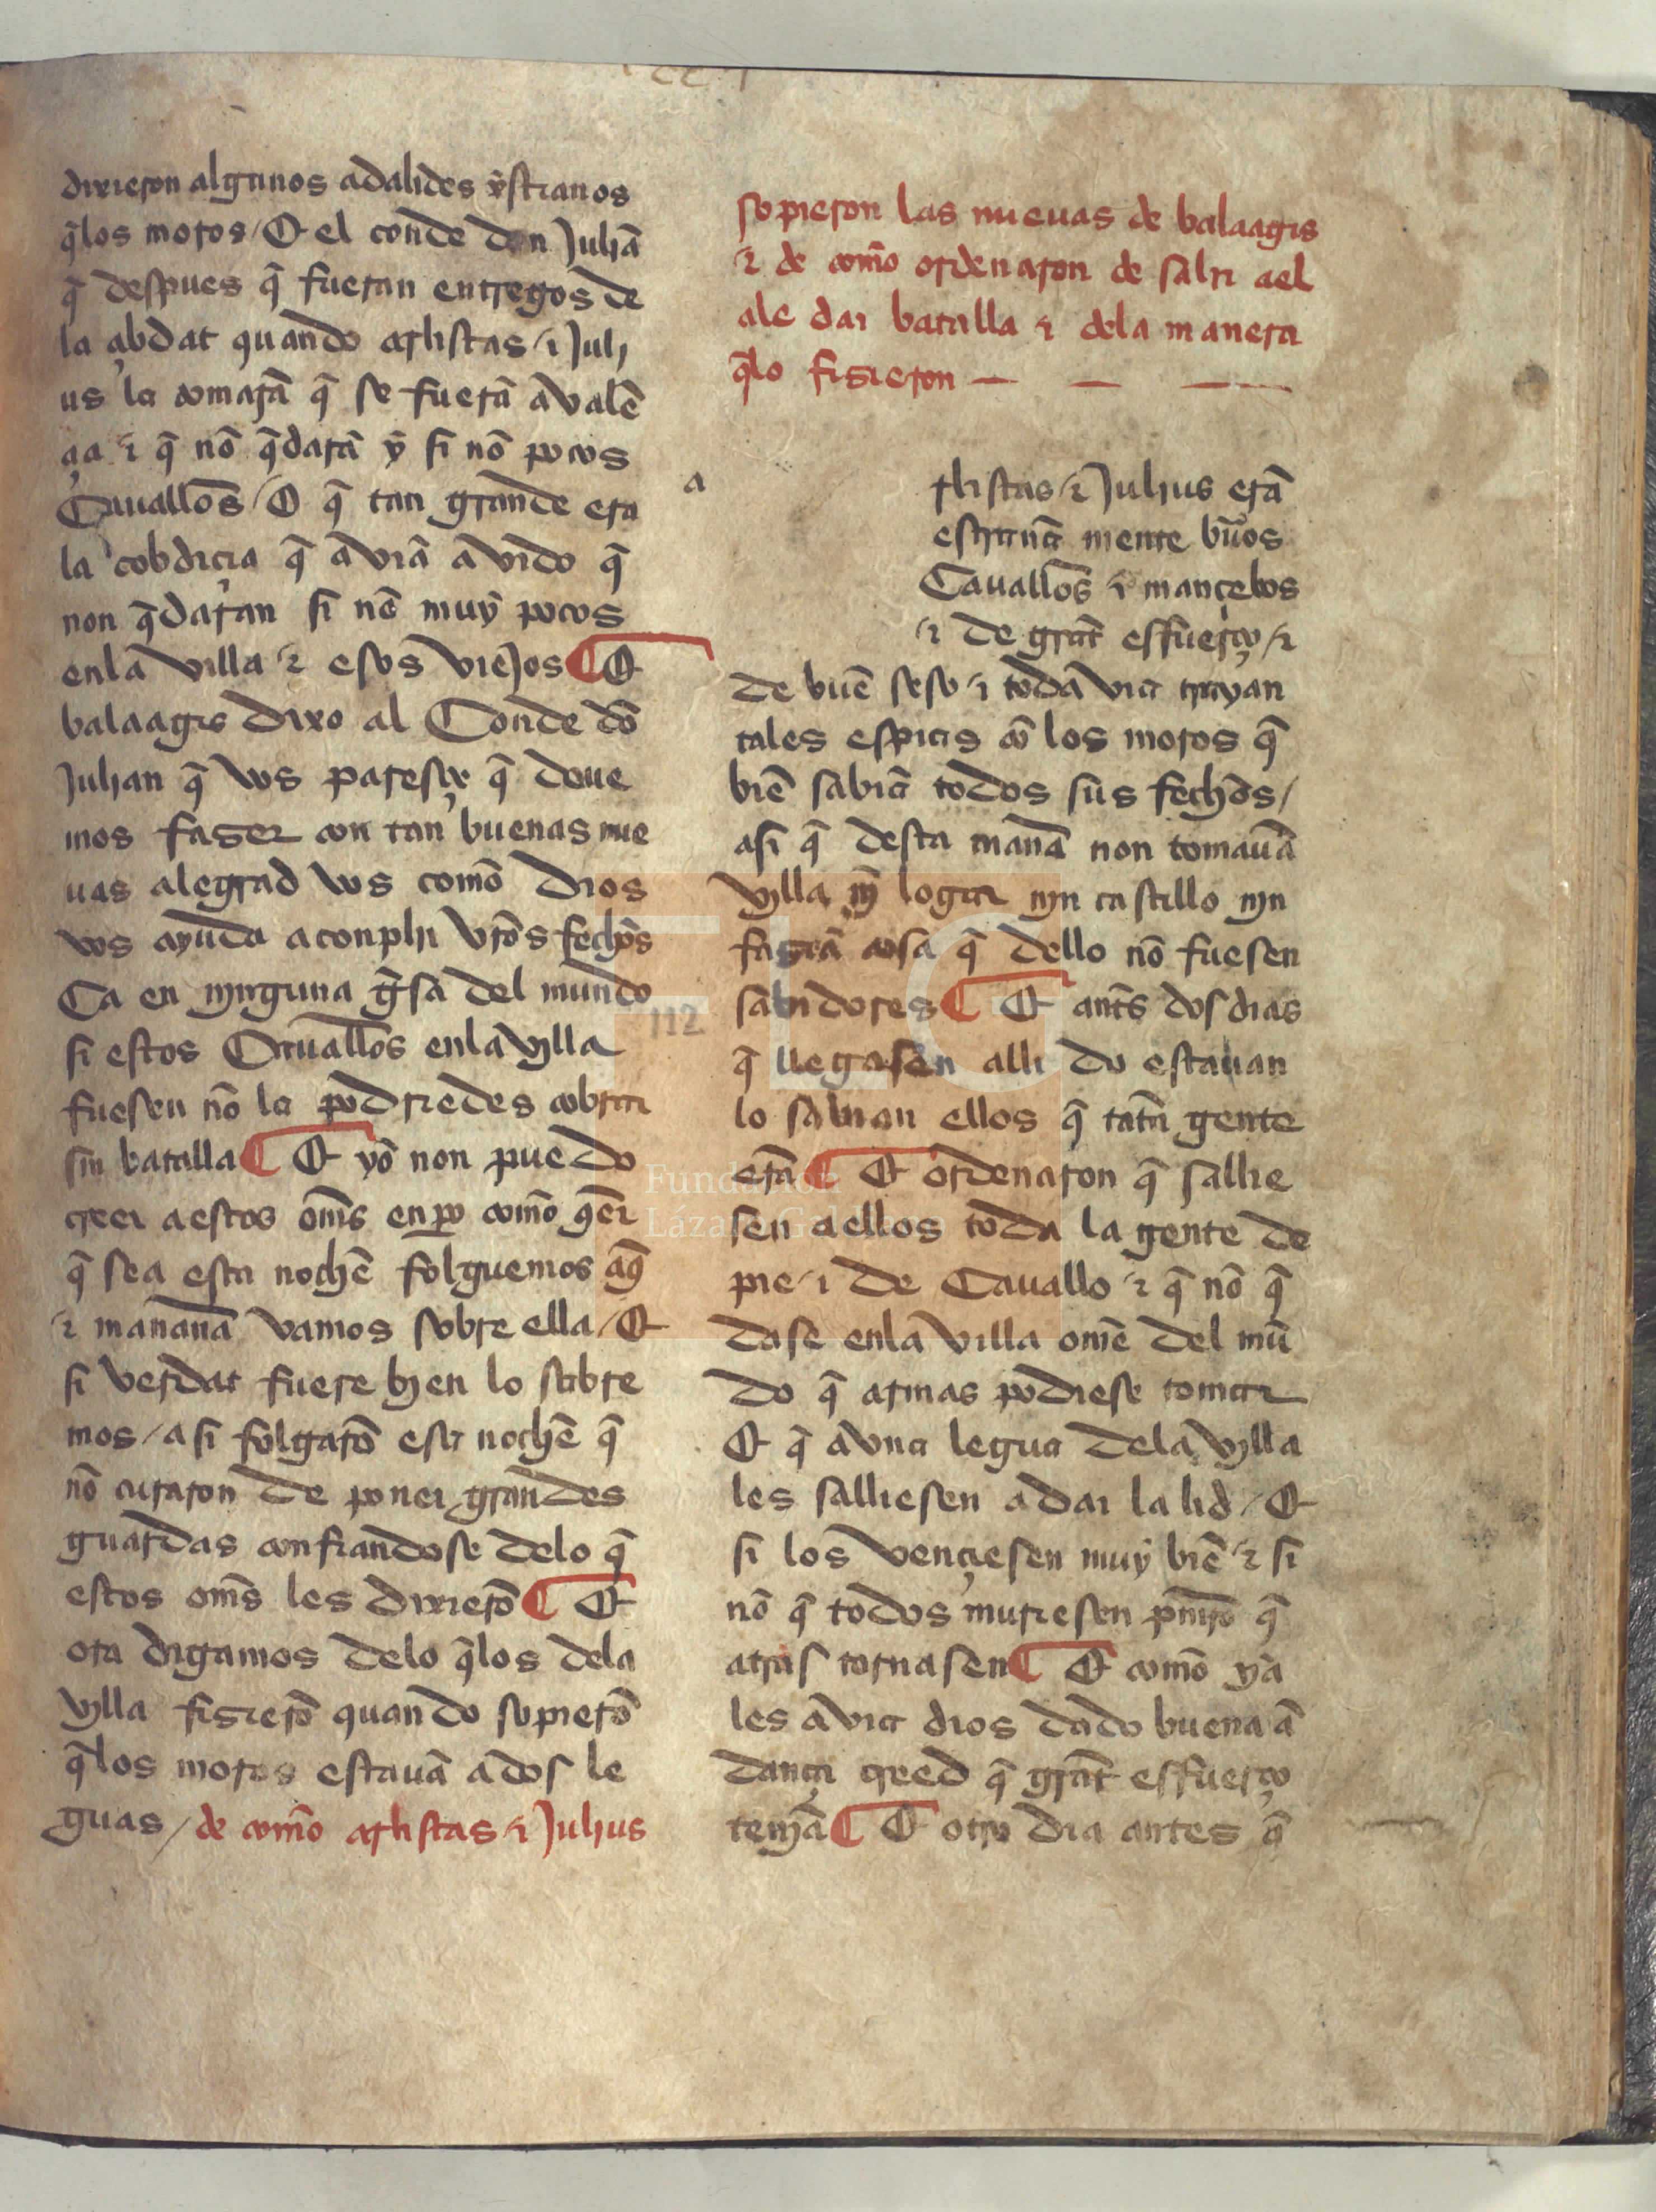 dixieron algunos adalides xp̄stianos
q̄los moros / E el conde don Juliā
q̄ despues q̄ fueran entregos de
la çibdat quando arlistas ⁊ Juli
us la tomarā q̄ se fuerā a valē
çia ⁊ q̄ nō q̄darā ȳ si nō pocos
Cauallōs / E q̄ tan grande era
la cobdiçia q̄ aviā avido q̄
non q̄daran si nō muy pocos
en la villa ⁊ esos viejos ¶ E
balaagis dixo al Conde dō
Julian q̄ vos paresçe q̄ deue
mos faser con tan buenas nue
uas alegrad vos comō dios
vos ayuda a conplir vr̄os fechōs
Ca en ninguna ḡsa del mundo
si estos Cauallōs en la villa
fuesen nō la podriedes cobrar
sin batalla ¶ E yō non puedo
creer a estos om̄s enp̱o comō q̄er
q̄ sea esta nochē folguemos aq̄
⁊ mañana vamos sobre ella / E
si verdat fuere bien lo sabre
mos / asi folgarō esta nochē q̄
nō curaron de poner grandes
guardas confiandose delo q̄
estos om̄s les dixierō ¶ E
ora digamos delo q̄los dela
villa fisierō quando sopierō
q̄los moros estauā a dos le
guas / de comō arlistas ⁊ Julius
sopieron las nueuas de balaagis
⁊ de comō ordenaron de salir a el
a le dar batalla ⁊ dela manera
q̄lo fisieron — — —
a
rlistas ⁊ Julius erā
estrañā mente būos
Cauallōs ⁊ mançebos
⁊ de grāt esfuerço ⁊
de buē seso ⁊ toda via trayan
tales espias cō los moros q̄
biē sabiā todos sus fechos /
asi q̄ desta manā non tomauā
villa nī logar nin castillo nin
fasiā cosa q̄ dello nō fuesen
sabidores ¶ E ant̄s dos dias
q̄ llegasen alli do estauan
lo sabian ellos q̄ tāta gente
erā ¶ E ordenaron q̄ sallie
sen a ellos toda la gente de
pie ⁊ de Cauallo ⁊ q̄ nō q̄
dase en la villa omē del mū
do q̄ armas podiese tomar
E q̄ a vna legua dela villa
les salliesen a dar la lid / E
si los vençiesen muy biē ⁊ si
nō q̄ todos muriesen pm̄ro q̄
atras tornasen ¶ E comō ya
les avia dios dado buena ā
dança creed q̄ grāt esfuerço
teniā ¶ E otro dia antes q̄
112